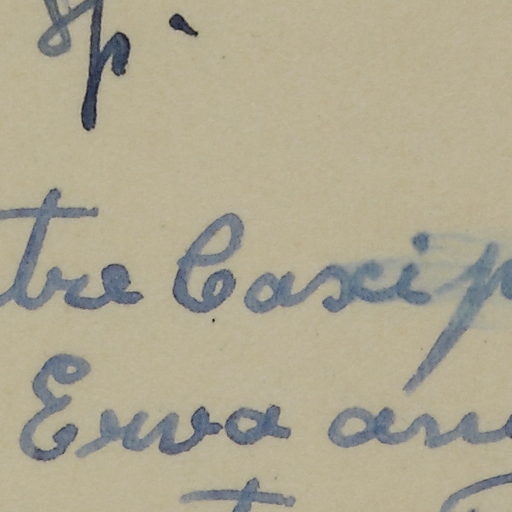 sp.
tre Caxip
Erva an